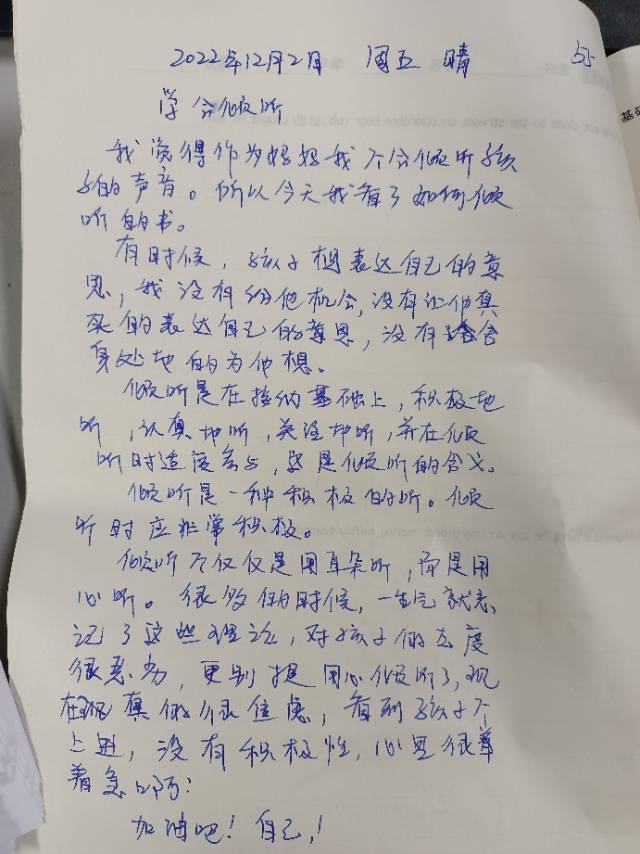 2022年12月2月 周五 晴
学会倾听
我觉得作为妈妈我不会倾听孩
子的声音。所以今天我看了如何倾
听的书。
有时候，孩子想表达自己的意
思，我没有给他机会，没有让他真
实的表达自己的意思，没有设身
处地的为他想。
倾听是在接纳基础上，积极地
听，认真地听，关注地听，并在倾
听时适度参与，这是倾听的含义。
倾听是一种积极的听。倾
听时应非常积极。
倾听不仅仅是用耳朵听，而是用
心听。很多的时候，一生气就忘
记了这些理论，对孩子的态度
很恶劣，更别提用心倾听了，现
在真的很焦虑，看到孩子不
上进，没有积极性，心里很
着急啊！
加油吧！自己！